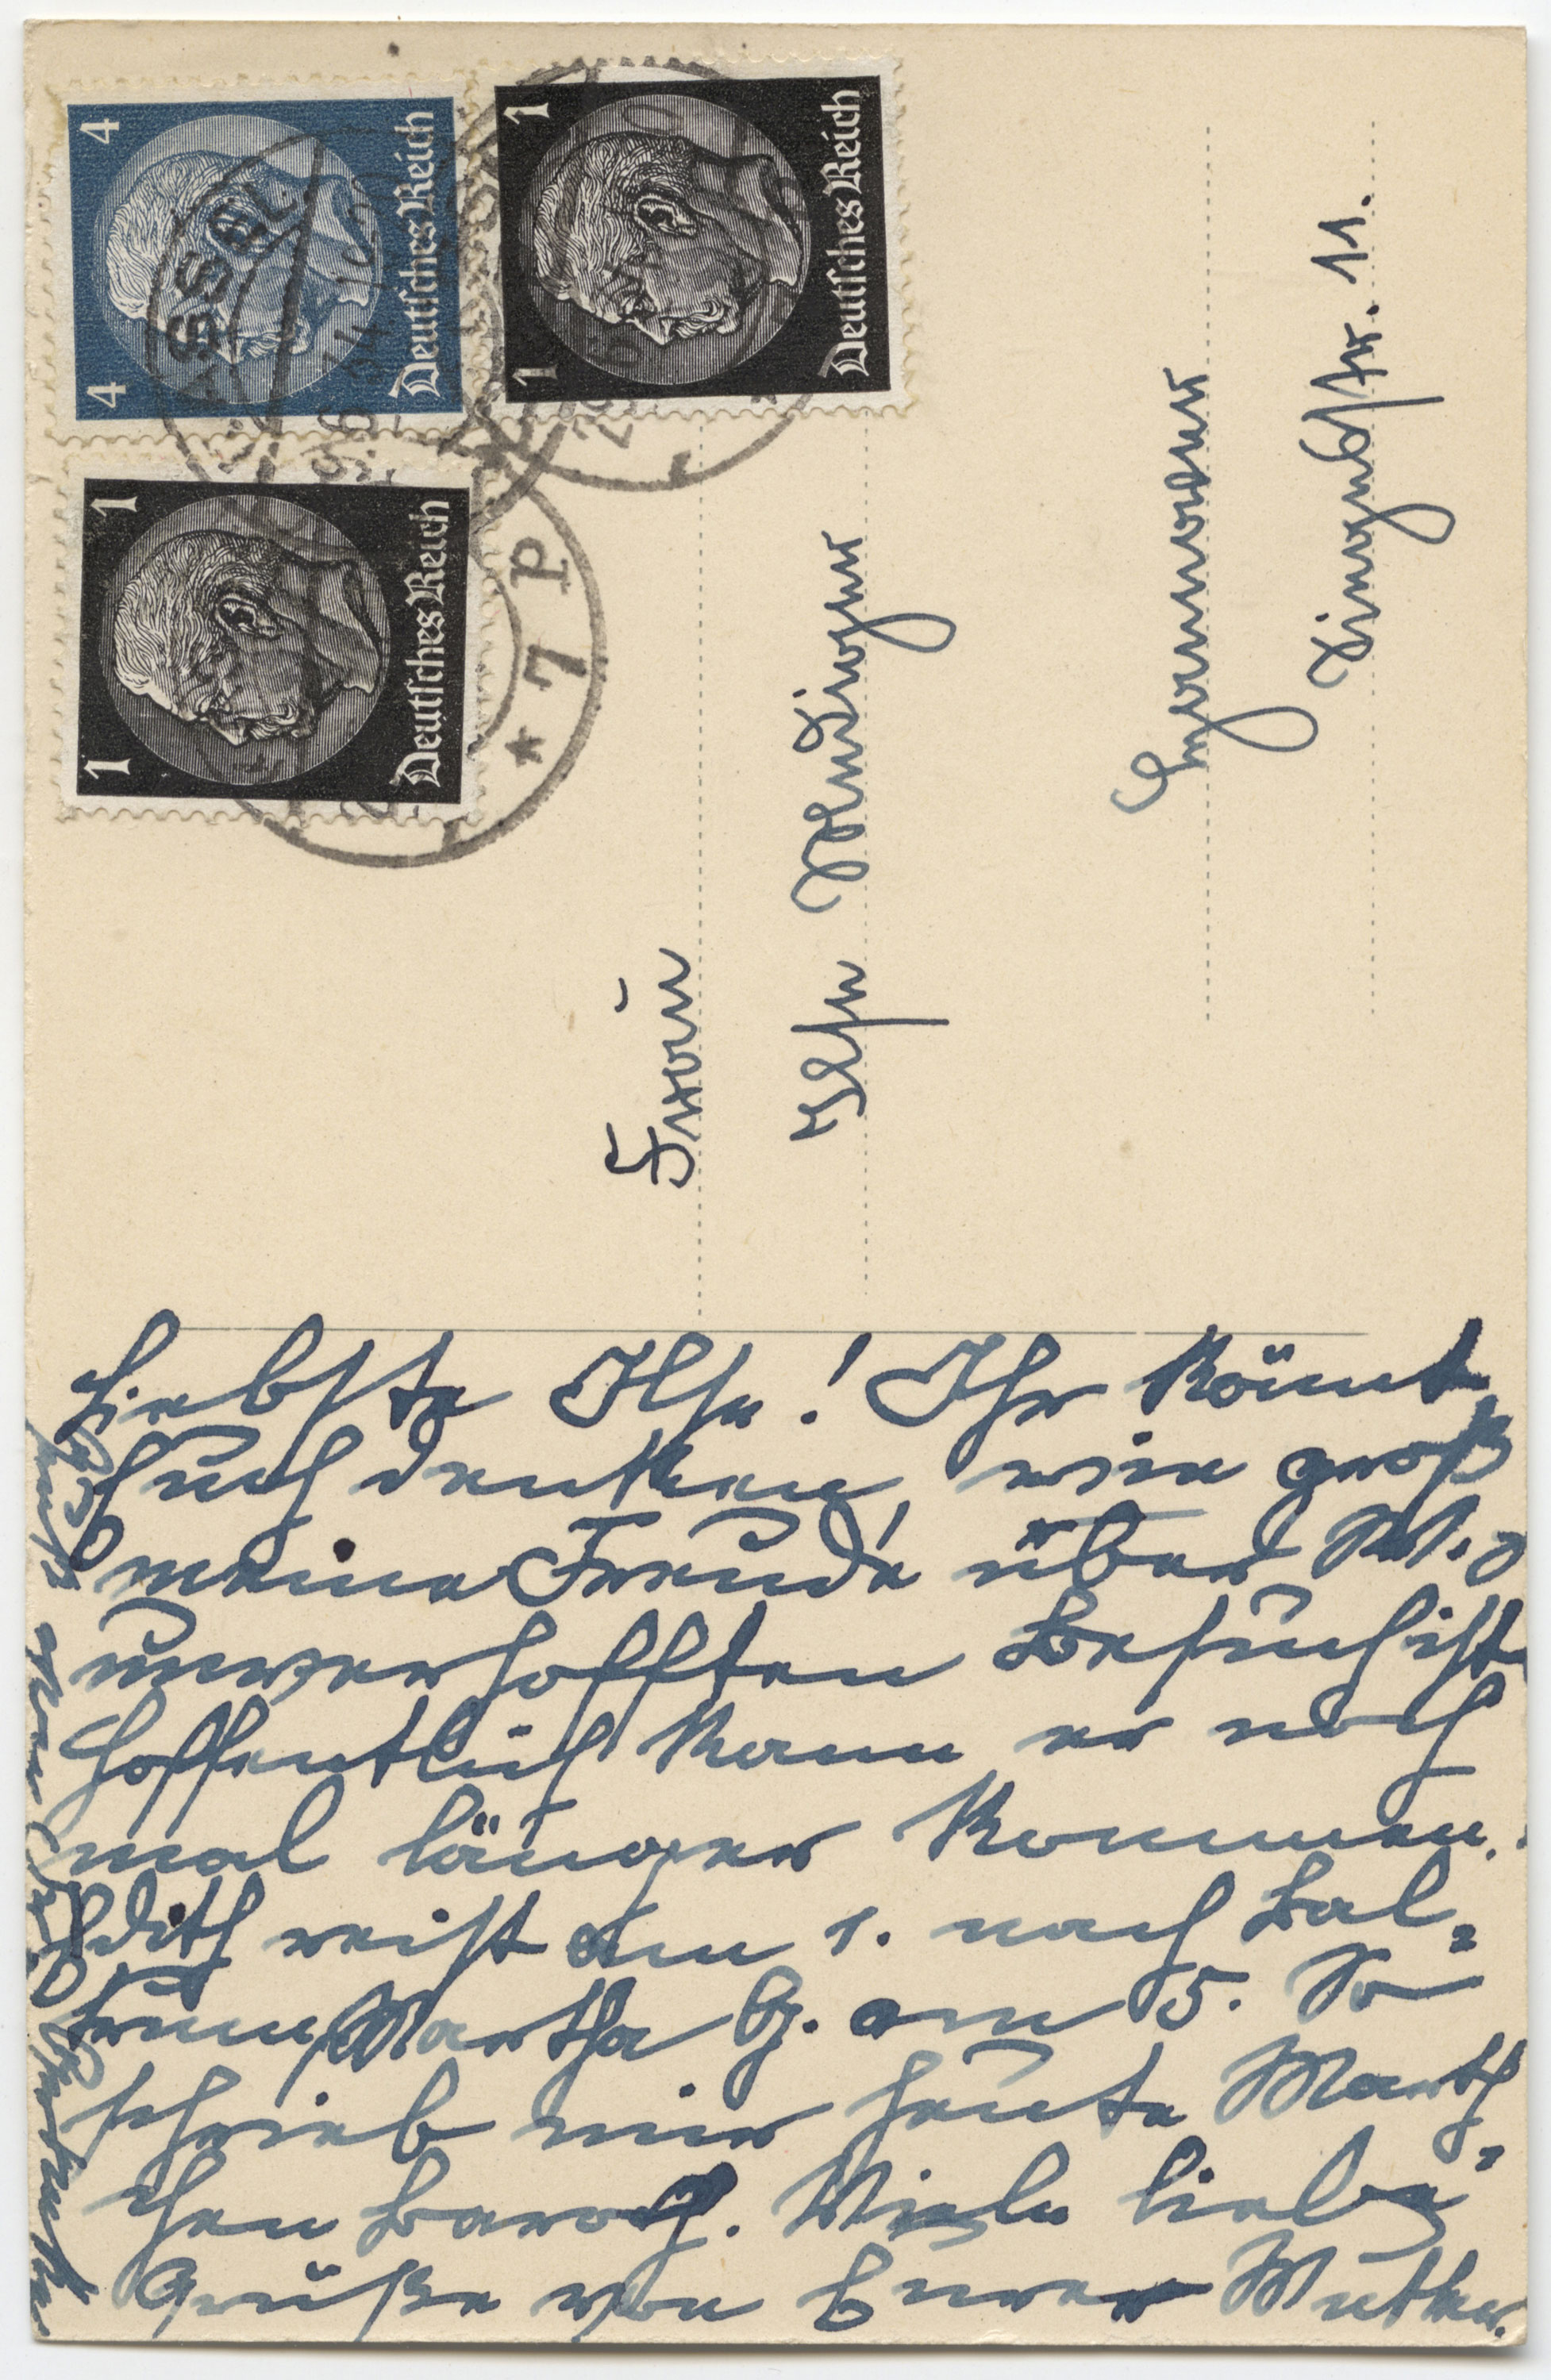 4 4
Deutsches Reich
1 1
Deutsches Reich
1 1
Deutsches Reich
KASSEL
* 7 p
Frau
Ilse
11.
Liebste Ilse! Ihr könnt
Euch denken, wie groß
meine Freude über M.s
unverhofften Besuch ist
Hoffentlich kann er noch
mal länger kommen.
Edith reist am 1. nach Bal=
trum, Martha G. am 5. So
schrieb mir heute Marth=
chen. Viele liebe
Grüße von Eurer Mutter.